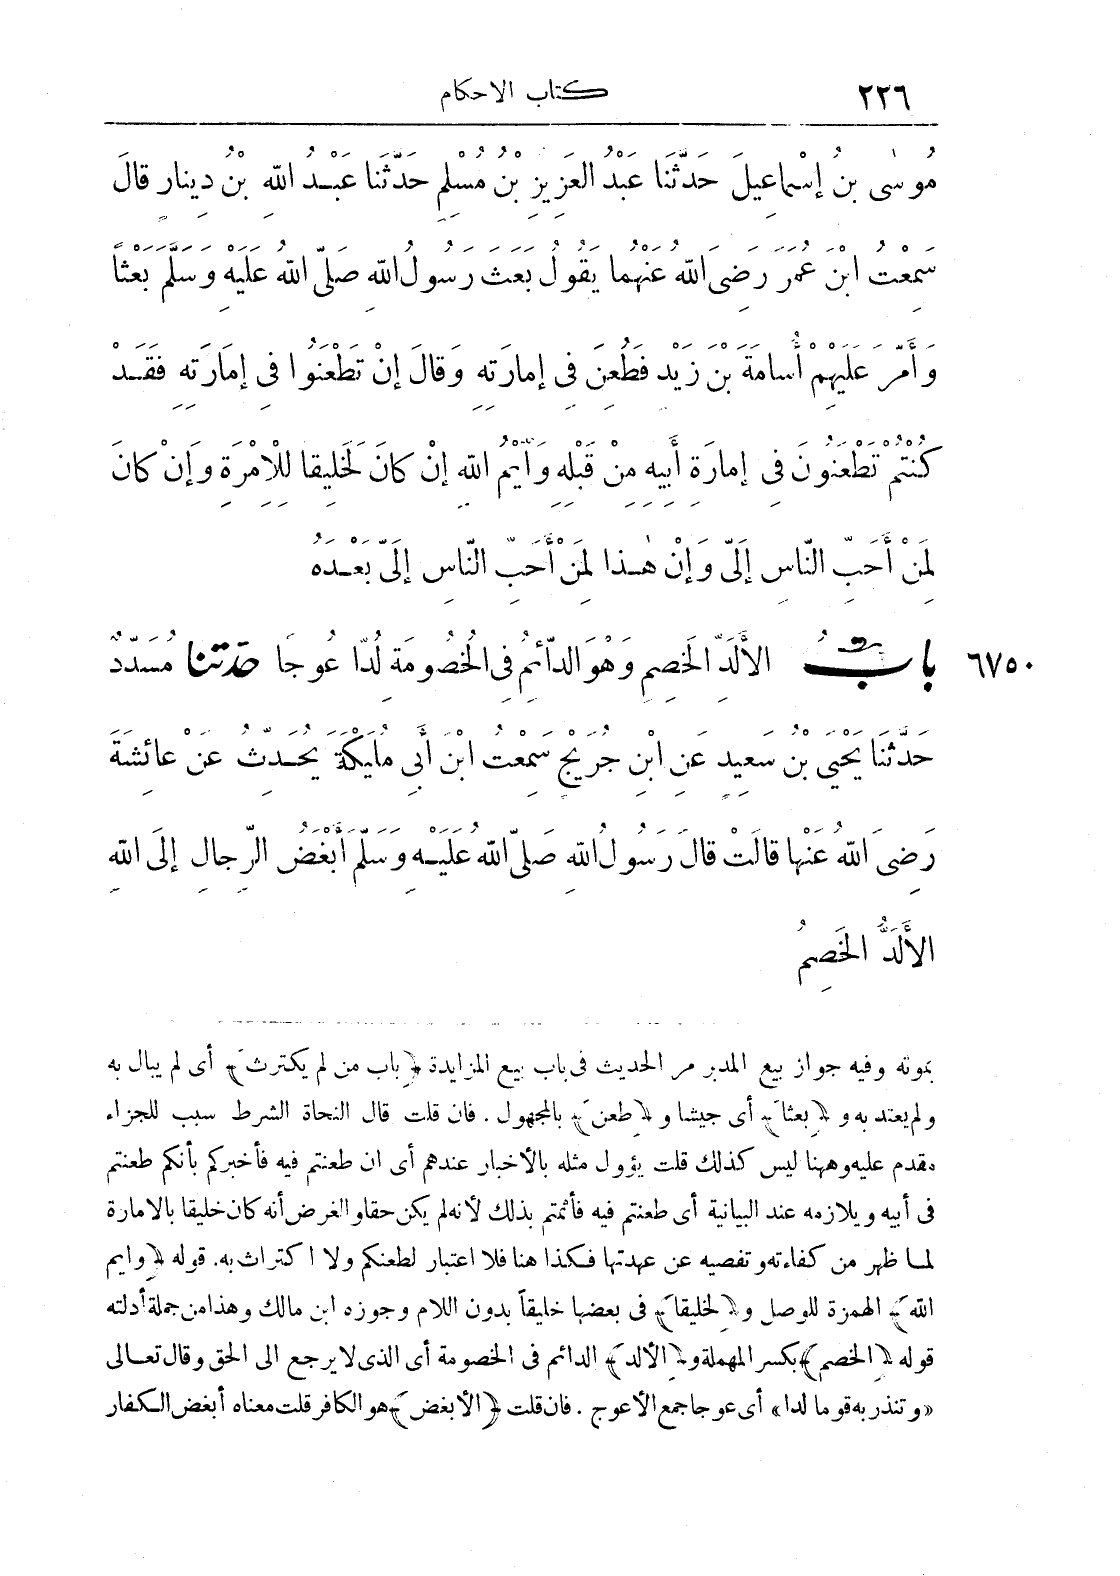 ٢٢٦ كتاب الاحكام
مُوسَى بنُ إِسْمَاعِيلَ حَدَّثَنَا عَبْدُ العَزِيزِ بْنُ مُسْلِمٍ حَدَّثَنَا عَبْدُ اللهِ بْنُ دِينَارٍ قَالَ
سَمِعْتُ ابْنَ عُمَرَ رَضِيَ اللهُ عَنْهُمَا يَقُولُ بَعَثَ رَسُولُ اللهِ صَلَّى اللهُ عَلَيْهِ وَسَلَّمَ بَعْثًا
وَأَمَّرَ عَلَيْهِمْ أُسَامَةَ بْنَ زَيْدٍ فَطُعِنَ فِي إِمَارَتِهِ وَقَالَ إِنْ تَطْعَنُوا فِي إِمَارَتِهِ فَقَدْ
كُنْتُمْ تَطْعَنُونَ فِي إِمَارَةِ أَبِيهِ مِنْ قَبْلِهِ وَأَيْمُ اللهِ إِنْ كَانَ لَخَلِيقًا لِلْإِمْرَةِ وَإِنْ كَانَ
لَمِنْ أَحَبِّ النَّاسِ إِلَيَّ وَإِنْ هٰذَا لَمِنْ أَحَبِّ النَّاسِ إِلَيَّ بَعْدَهُ
٦٧٥٠ بَابُ الأَلَدِّ الخَصِمِ وَهُوَ الدَّائِمُ فِي الْخُصُومَةِ لُدًّا عُوجًا حدثنا مُسَدَّدٌ
حَدَّثَنَا يَحْيَى بْنُ سَعِيدٍ عَنِ ابْنِ جُرَيْجٍ سَمِعْتُ ابْنَ أَبِي مُلَيْكَةَ يُحَدِّثُ عَنْ عَائِشَةَ
رَضِيَ اللهُ عَنْهَا قَالَتْ قَالَ رَسُولُ اللهِ صَلَّى اللهُ عَلَيْهِ وَسَلَّمَ أَبْغَضُ الرِّجَالِ إِلَى اللهِ
الأَلَدُّ الخَصِمُ
بموته وفيه جواز بيع المدبر مر الحديث فى باب بيع المزايدة ﴿باب من لم يكترث﴾ أى لم يبال به
ولم يعتد به و ﴿بعثا﴾ أى جيشا و ﴿طعن﴾ بالمجهول . فان قلت قال النحاة الشرط سبب للجزاء
مقدم عليه وههنا ليس كذلك قلت يؤول مثله بالأخبار عندهم أى ان طعنتم فيه فأخبركم بأنكم طعنتم
فى أبيه ويلازمه عند البيانية أى طعنتم فيه فأثمتم بذلك لأنه لم يكن حقا والغرض أنه كان خليقا بالامارة
لما ظهر من كفاءته وتفصيه عن عهدتها فكذا هنا فلا اعتبار لطعنكم ولا اكتراث به. قوله ﴿وايم
الله﴾ الهمزة للوصل و﴿لخليقا﴾ فى بعضها خليقاً بدون اللام وجوزه ابن مالك وهذا من جملة أدلته
قوله ﴿الخصم﴾ بكسر المهملة و﴿الألد﴾ الدائم فى الخصومة أى الذى لا يرجع الى الحق وقال تعالى
«وتنذر به قوما لدا» أى عوجا جمع الأعوج . فان قلت ﴿الأبغض﴾ هو الكافر قلت معناه أبغض الكفار